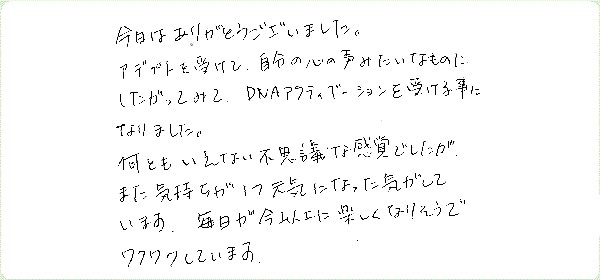 今日はありがとうございました。
アデプトを受けて、自分の心の声みたいなものに
したがってみて、DNAアクティベーションを受ける事に
なりました。
何ともいえない不思議な感覚でしたが、
また気持ちが1つ元気になった気がして
います。毎日が今以上に楽しくなりそうで
ワクワクしています。